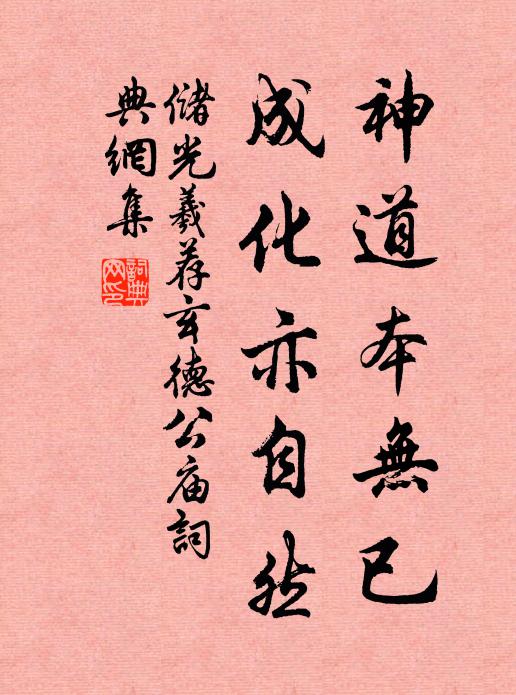 神道本無已
成化亦自然
儲光羲荐玄德公庙詞
典網集
詞典网印